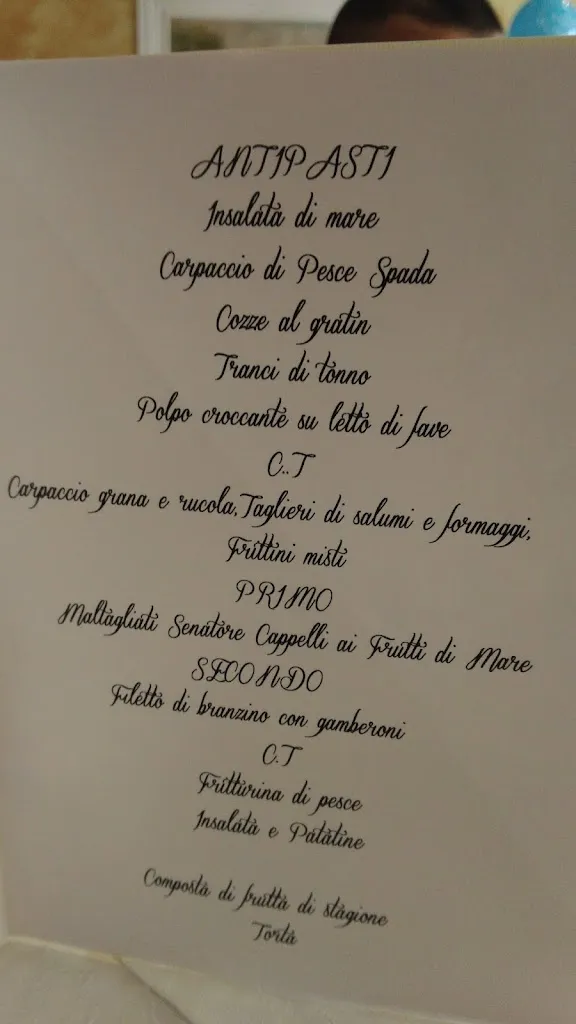 ANTIPASTI
Insalata di mare
Carpaccio di Pesce Spada
Cozze al gratin
Tranci di tonno
Polpo croccante su letto di fave
C..T
Carpaccio grana e rucola,Taglieri di salumi e formaggi,
Frittini misti
PRIMO
Maltagliati Senatore Cappelli ai Frutti di Mare
SECONDO
Filetto di branzino con gamberoni
C.T
Fritturina di pesce
Insalata e Patatine
Composta di frutta di stagione
Torta